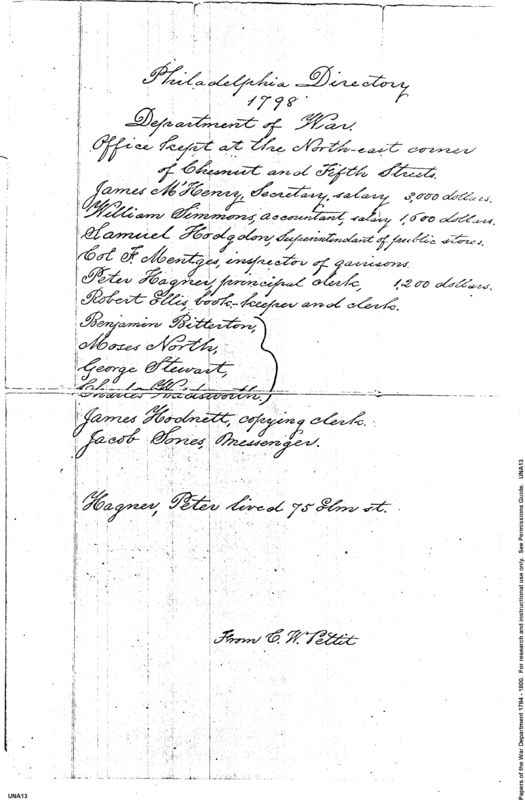 Philadelphia Directory
1798
Department of War.
Office kept at the North-east corner
of Chesnut and Fifth Streets.
James McHenry, Secretary, salary 3,000 dollars.
William Simmons, accountant, salary 1,600 dollars.
Samuel Hodgdon, Superintendant of public stores.
Col F. Mentges, inspector of garrisons.
Peter Hagner, principal clerk, 1,200 dollars.
Robert Ellis, book-keeper and clerk.
Benjamin Bitterton,
Moses North,
George Stewart,
Charles Wadsworth.
James Hodnett, copying clerk.
Jacob Sones, Messenger.
Hagner, Peter lived 75 Elm st.
From C. W. Pettit
UNA13
Papers of the War Department 1784 - 1800. For research and instructional use only. See Permissions Guide. UNA13